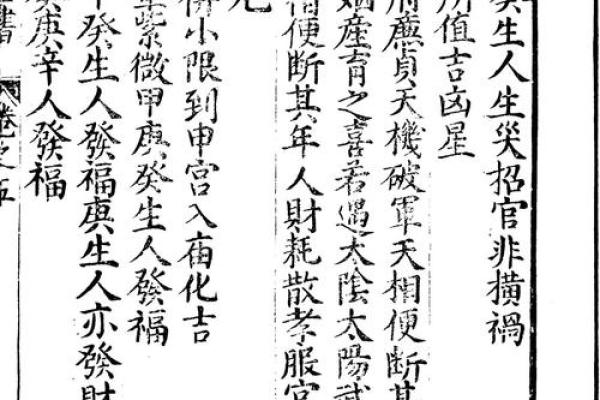 癸生人生災招官非橫禍
所值吉凶星
府廉貞天機破軍天相便斷其
姻産育之喜若遇太陰太陽武
宿便斷其年人財耗散孝服官
限小限到申宮入庙化吉
紫微甲庚癸生人發福
癸生人發福庚生人亦發財
庚辛人發福
卷之五